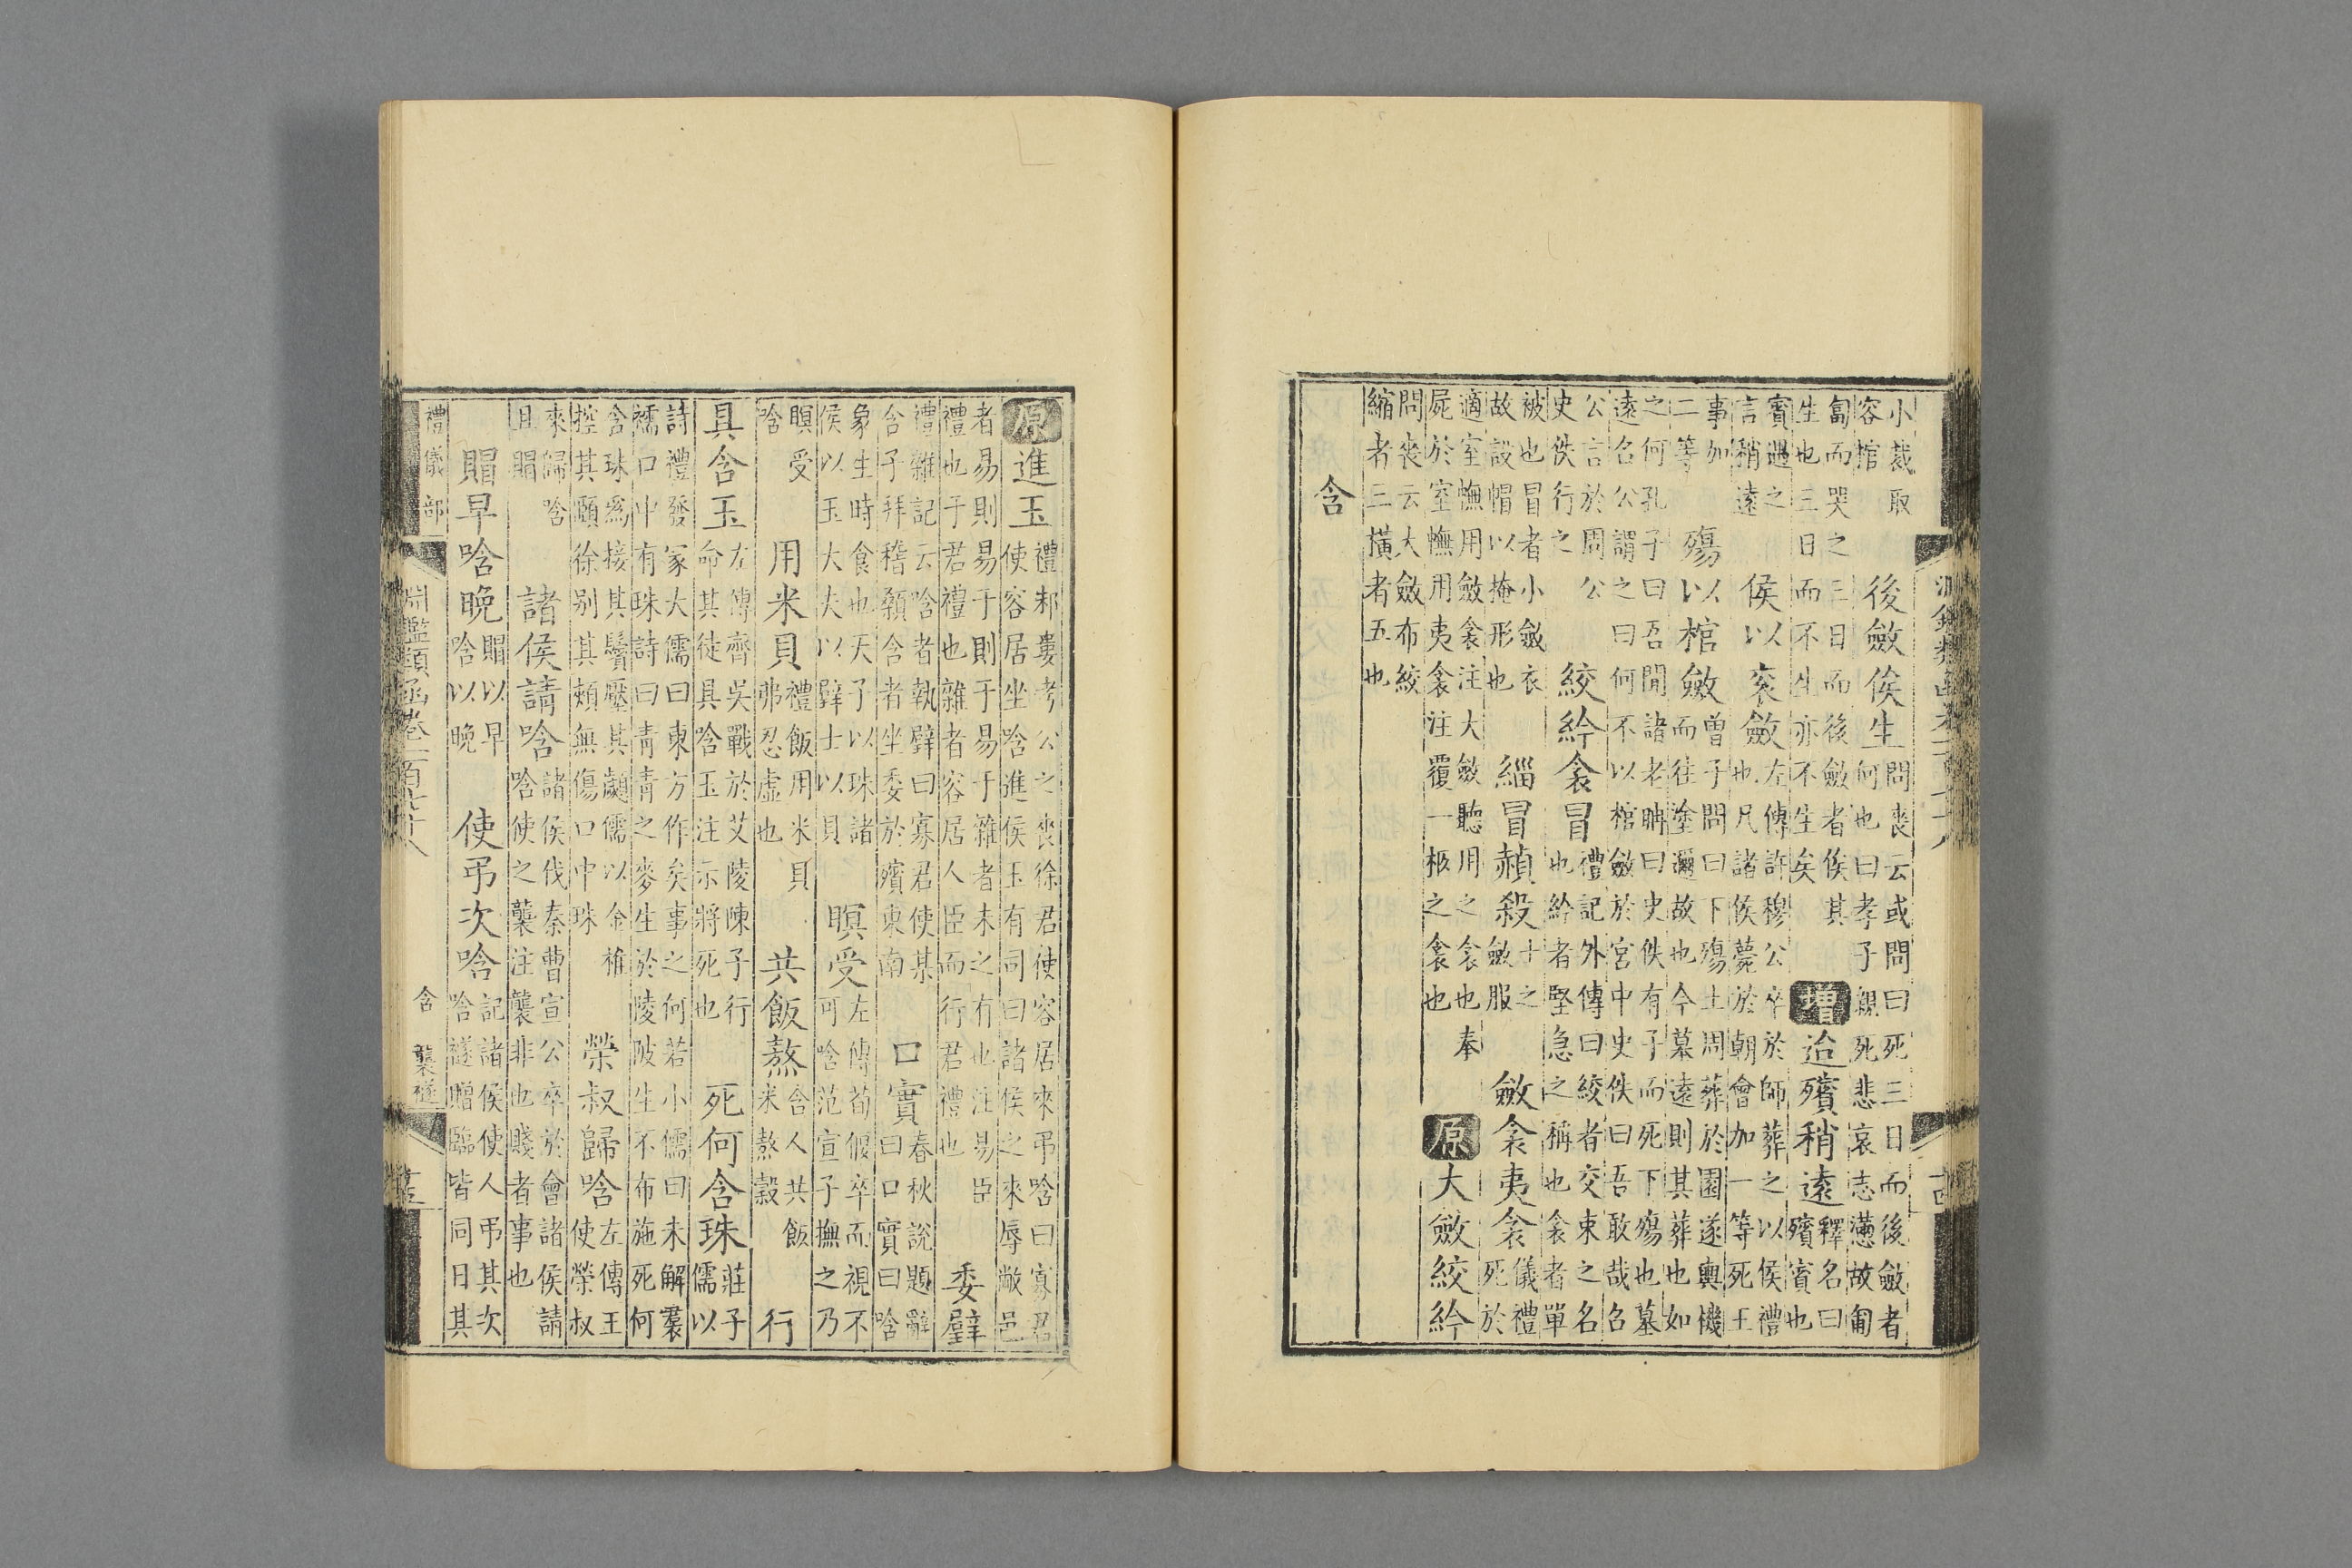 淵鑑類函卷一百八十八
小裁取
容棺
後斂俟生
問喪云或問曰死三日而後斂者
何也曰孝子親死悲哀志懣故匍
匐而哭之三日而後斂者俟其
生也三日而不生亦不生矣
增迨殯稍遠
釋名曰
殯賓也
賓遇之
言稍遠
侯以衮斂
左傳許穆公卒於師葬之以侯禮
也凡諸侯薨於朝會加一等死王
事加
二等
殤以棺斂
曾子問曰下殤土周葬於園遂輿機
而往塗邇故也今墓遠則其葬也如
之何孔子曰吾聞諸老聃曰史佚有子而死下殤也墓
遠召公謂之曰何不以棺斂於宮中史佚曰吾敢哉召
公言於周公
史佚行之
絞紟衾冒
禮記外傳曰絞者交束之名
也紟者堅急之稱也衾者單
被也冒者小斂衣
故設帽以掩形也
緇冒赬殺
士之
斂服
斂衾夷衾
儀禮
死於
適室幠用斂衾注大斂聽用之衾也奉
屍於室幠用夷衾注覆一柩之衾也
原大斂絞紟
問喪云大斂布絞
縮者三橫者五也
含
原進玉
禮邾婁考公之喪徐君使容居來弔唅曰寡君
使容居坐唅進侯玉有同曰諸侯之來辱敝邑
者易則易于則于易于雜者未之有也注易臣
禮也于君禮也雜者容居人臣而行君禮也
委璧
禮雜記云唅者執璧曰寡君使某
含子拜稽顙含者坐委於殯東南
口實
春秋說題辭
曰口實曰唅
象生時食也天子以珠諸
侯以玉大夫以璧士以貝
暝受
左傳荀偃卒而視不
可唅范宣子撫之乃
暝受
唅
用米貝
禮飯用米貝
弗忍虛也
共飯熬
含人共飯
米熬穀
行
具含玉
左傳齊吳戰於艾陵陳子行
命其徒具唅玉注示將死也
死何含珠
莊子
儒以
詩禮發冢大儒曰東方作矣事之何若小儒曰未解裠
襦口中有珠詩曰青青之麥生於陵陂生不布施死何
含珠爲接其鬢壓其顪儒以金椎
控其頤徐别其頰無傷口中珠
榮叔歸唅
左傳王
使榮叔
來歸唅
且賵
諸侯請唅
諸侯伐秦曹宣公卒於會諸侯請
唅使之襲注襲非也賤者事也
賵早唅晚
賵以早
唅以晚
使弔次唅
記諸侯使人弔其次
唅襚賵臨皆同日其
禮儀部
淵鑑類函卷一百八十八
含 襲襚